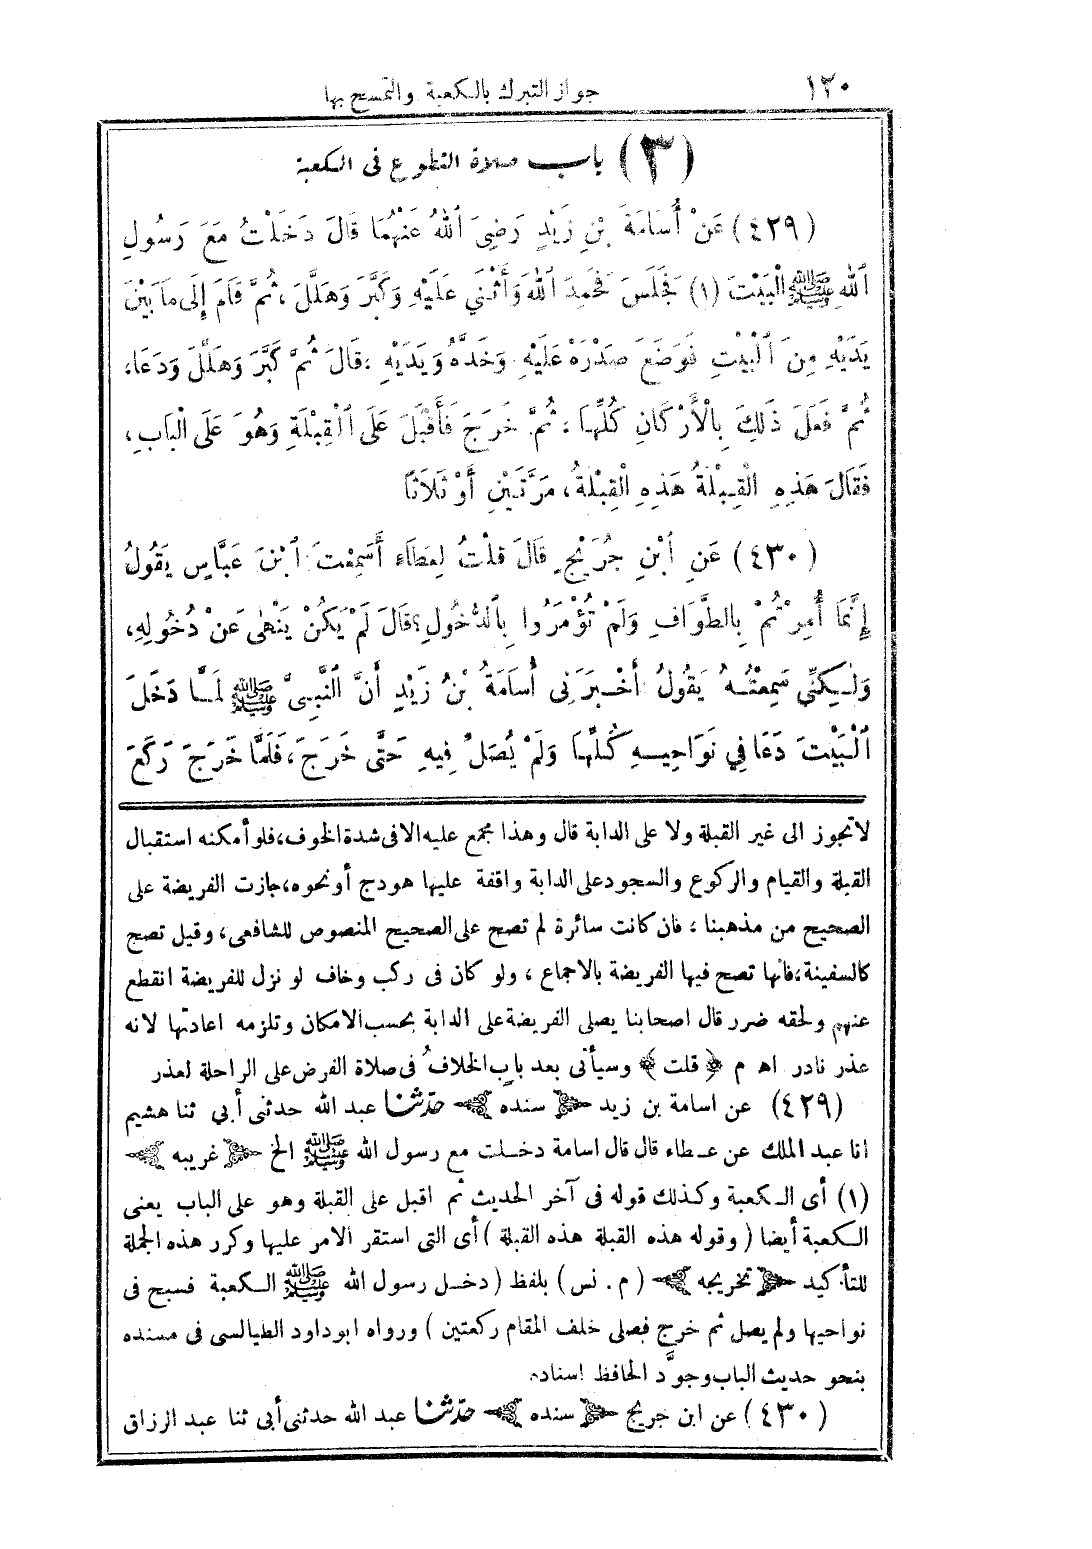 ١٢٠
جواز التبرك بالكعبة والتمسح بها
(٣) باب صلاة التطوع فى الكعبة
(٤٢٩) عَنْ أُسَامَةَ بْنِ زَيْدٍ رَضِيَ ٱللهُ عَنْهُمَا قَالَ دَخَلْتُ مَعَ رَسُولِ
ٱللهِ ﷺ الْبَيْتَ (١) فَجَلَسَ فَحَمِدَ ٱللهَ وَأَثْنَى عَلَيْهِ وَكَبَّرَ وَهَلَّلَ ، ثُمَّ قَامَ إِلَى مَا بَيْنَ
يَدَيْهِ مِنَ ٱلْبَيْتِ فَوَضَعَ صَدْرَهُ عَلَيْهِ وَخَدَّهُ وَيَدَيْهِ ، قَالَ ثُمَّ كَبَّرَ وَهَلَّلَ وَدَعَا ،
ثُمَّ فَعَلَ ذَلِكَ بِالْأَرْكَانِ كُلِّهَا ، ثُمَّ خَرَجَ فَأَقْبَلَ عَلَى ٱلْقِبْلَةِ وَهُوَ عَلَى الْبَابِ ،
فَقَالَ هَذِهِ الْقِبْلَةُ هَذِهِ الْقِبْلَةُ ، مَرَّتَيْنِ أَوْ ثَلَاثًا
(٤٣٠) عَنِ ٱبْنِ جُرَيْجٍ قَالَ قُلْتُ لِعَطَاءٍ أَسَمِعْتَ ٱبْنَ عَبَّاسٍ يَقُولُ
إِنَّمَا أُمِرْتُمْ بِالطَّوَافِ وَلَمْ تُؤْمَرُوا بِٱلدُّخُولِ ؟ قَالَ لَمْ يَكُنْ يَنْهَى عَنْ دُخُولِهِ ،
وَلَكِنِّي سَمِعْتُهُ يَقُولُ أَخْبَرَنِى أُسَامَةُ بْنُ زَيْدٍ أَنَّ ٱلنَّبِيَّ ﷺ لَمَّا دَخَلَ
ٱلْبَيْتَ دَعَا فِي نَوَاحِيهِ كُلِّهَا وَلَمْ يُصَلِّ فِيهِ حَتَّى خَرَجَ ، فَلَمَّا خَرَجَ رَكَعَ
لا تجوز الى غير القبلة ولا على الدابة قال وهذا مجمع عليه الا فى شدة الخوف ، فلو أمكنه استقبال
القبلة والقيام والركوع والسجود على الدابة واقفة عليها هودج أو نحوه ، جازت الفريضة على
الصحيح من مذهبنا ، فان كانت سائرة لم تصح على الصحيح المنصوص للشافعى ، وقيل تصح
كالسفينة ، فانها تصح فيها الفريضة بالاجماع ، ولو كان فى ركب وخاف لو نزل للفريضة انقطع
عنهم ولحقه ضرر قال اصحابنا يصلى الفريضة على الدابة بحسب الامكان وتلزمه اعادتها لانه
عذر نادر اهـ م ﴿ قلت ﴾ وسيأتى بعد باب الخلاف فى صلاة الفرض على الراحلة لعذر
(٤٢٩) عن اسامة بن زيد ﴿ سنده ﴾ حدثنا عبد الله حدثنى أبي ثنا هشيم
انا عبد الملك عن عطاء قال قال اسامة دخلت مع رسول الله ﷺ الخ ﴿ غريبه ﴾
(١) أى الكعبة وكذلك قوله فى آخر الحديث ثم اقبل على القبلة وهو على الباب يعنى
الكعبة أيضا ( وقوله هذه القبلة هذه القبلة ) أى التى استقر الامر عليها وكرر هذه الجملة
للتأكيد ﴿ تخريجه ﴾ ( م . نس ) بلفظ ( دخل رسول الله ﷺ الكعبة فسبح فى
نواحيها ولم يصل ثم خرج فصلى خلف المقام ركعتين ) ورواه ابو داود الطيالسى فى مسنده
بنحو حديث الباب وجوَّد الحافظ اسناده
(٤٣٠) عن ابن جريج ﴿ سنده ﴾ حدثنا عبد الله حدثنى أبى ثنا عبد الرزاق